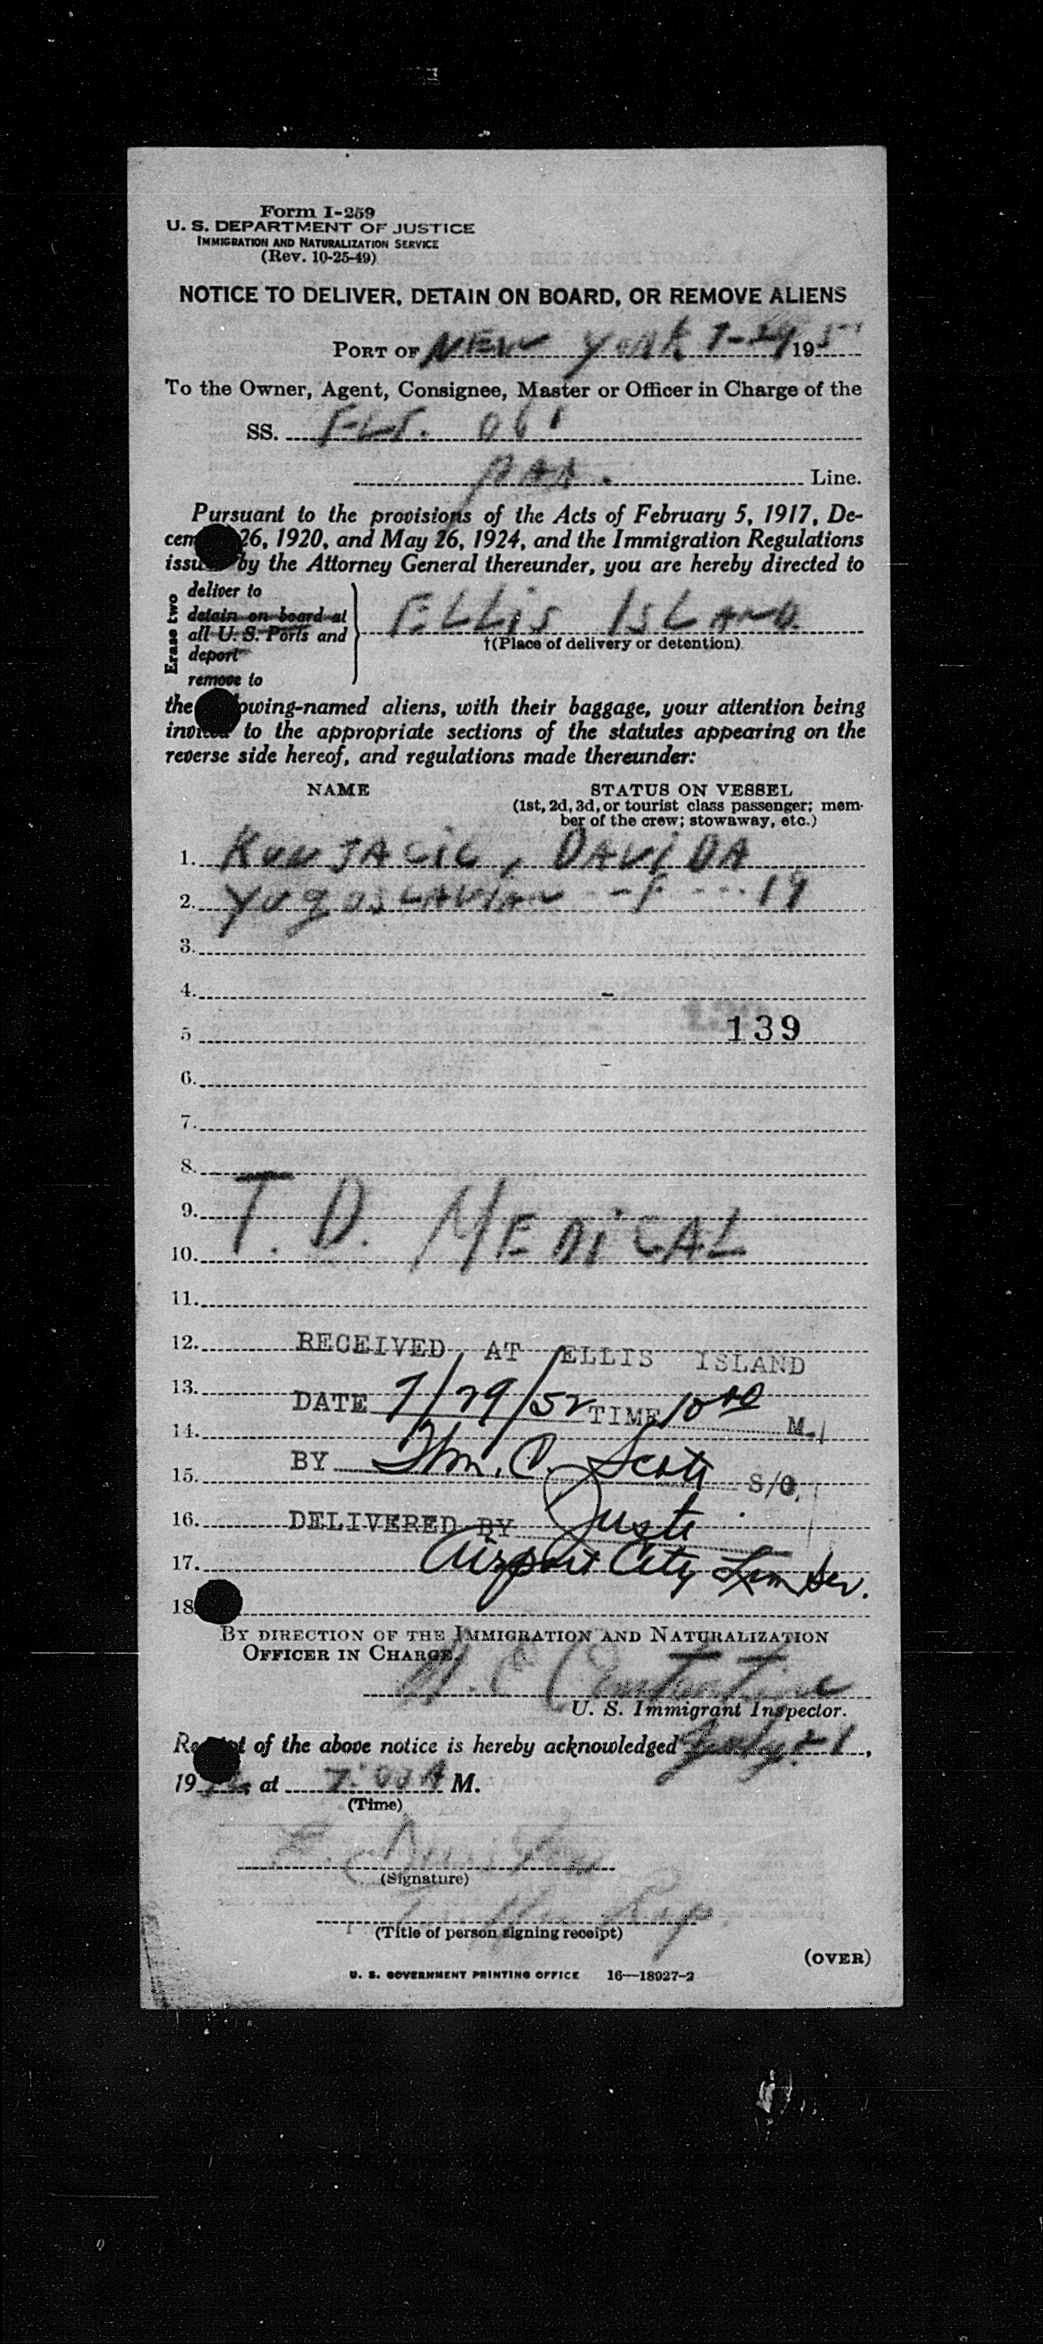 Form I-259
U. S. DEPARTMENT OF JUSTICE
IMMIGRATION AND NATURALIZATION SERVICE
(Rev. 10-25-49)
NOTICE TO DELIVER, DETAIN ON BOARD, OR REMOVE ALIENS
PORT OF NEW YORK 7-29 195
To the Owner, Agent, Consignee, Master or Officer in Charge of the
SS. FLT. 061
PAA. Line.
Pursuant to the provisions of the Acts of February 5, 1917, De-
cem 26, 1920, and May 26, 1924, and the Immigration Regulations
issued by the Attorney General thereunder, you are hereby directed to
Erase two
deliver to
detain on board at
all U. S. Ports and
deport
remove to
ELLIS ISLAND
†(Place of delivery or detention)
the owing-named aliens, with their baggage, your attention being
invited to the appropriate sections of the statutes appearing on the
reverse side hereof, and regulations made thereunder:
NAME STATUS ON VESSEL
(1st, 2d, 3d, or tourist class passenger; mem-
ber of the crew; stowaway, etc.)
1. DAVIDA
2. YUGOSLAVIAN - F - 19
3.
4.
5 139
6.
7.
8.
9. T. D. MEDICAL
10.
11.
12. RECEIVED AT ELLIS ISLAND
13. DATE 7/29/52 TIME 10 00 M.
14.
15. BY Wm. C. Scott S/O.
16. DELIVERED BY Juste
17. Airport City Lim Ser.
18
BY DIRECTION OF THE IMMIGRATION AND NATURALIZATION
OFFICER IN CHARGE.
U. S. Immigrant Inspector.
Receipt of the above notice is hereby acknowledged July,
19 at 7:00 A M.
(Time)
(Signature)
(Title of person signing receipt)
(OVER)
U. S. GOVERNMENT PRINTING OFFICE 16—18927-2